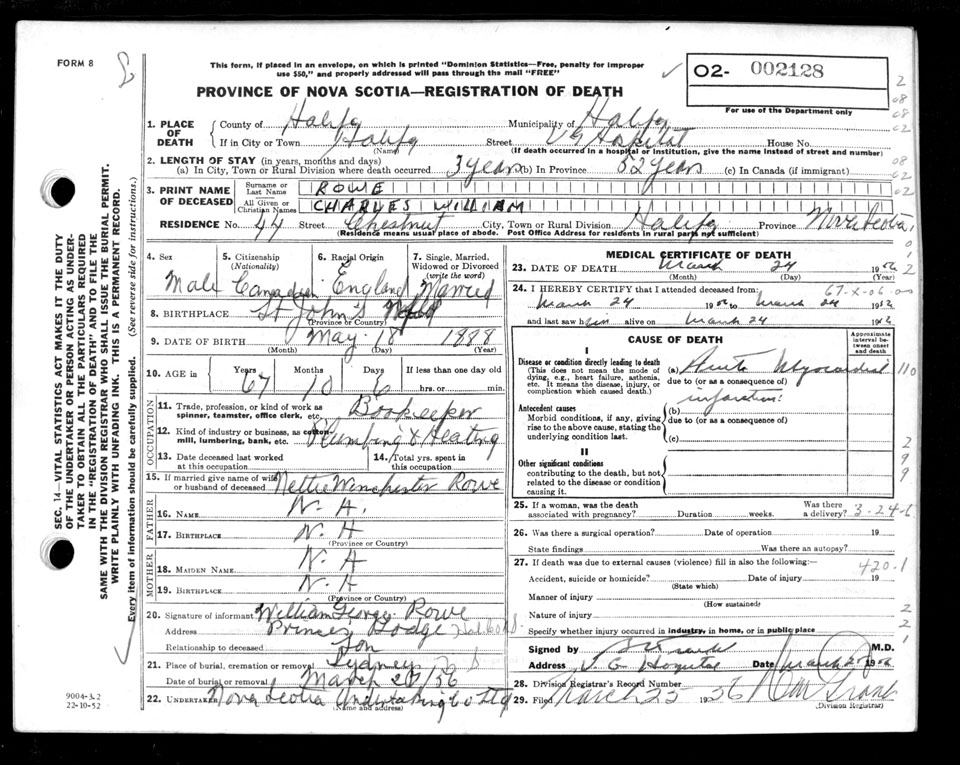 FORM 8
This form, if placed in an envelope, on which is printed "Dominion Statistics—Free, penalty for improper
use $50," and properly addressed will pass through the mail "FREE"
PROVINCE OF NOVA SCOTIA—REGISTRATION OF DEATH
O2- 002128
For use of the Department only
1. PLACE OF DEATH
County of Halifx Municipality of Halifx
If in City or Town Halifx Street VG Hospital House No.
(Name) (If death occurred in a hospital or institution, give the name instead of street and number)
2. LENGTH OF STAY (in years, months and days)
(a) In City, Town or Rural Division where death occurred 3 years (b) In Province 52 years (c) In Canada (if immigrant)
3. PRINT NAME OF DECEASED
Surname or Last Name ROWE
All Given or Christian Names CHARLES WILLIAM
RESIDENCE No. 44 Street Chestnut City, Town or Rural Division Halifx Province Nova Scotia
(Residence means usual place of abode. Post Office Address for residents in rural parts not sufficient)
4. Sex 5. Citizenship (Nationality) 6. Racial Origin 7. Single, Married, Widowed or Divorced (write the word)
Male Canadian England Married
8. BIRTHPLACE St John's Nfld
(Province or Country)
9. DATE OF BIRTH May 18 1888
(Month) (Day) (Year)
10. AGE in Years Months Days If less than one day old
67 10 6 hrs. or min.
OCCUPATION
11. Trade, profession or kind of work as spinner, teamster, office clerk, etc. Bookeeper
12. Kind of industry or business, as cotton-mill, lumbering, bank, etc. Plumbing & Heating
13. Date deceased last worked at this occupation
14. Total yrs. spent in this occupation
15. If married give name of wife or husband of deceased Nettie Winchester Rowe
FATHER
16. NAME N. A.
17. BIRTHPLACE N. A
(Province or Country)
MOTHER
18. MAIDEN NAME N. A
19. BIRTHPLACE N. A
(Province or Country)
20. Signature of informant William George Rowe
Address Princes Lodge
Relationship to deceased Son
21. Place of burial, cremation or removal Sydney
Date of burial or removal March 26/56
22. UNDERTAKER Nova Scotia Undertaking Co Ltd
(Name and address)
MEDICAL CERTIFICATE OF DEATH
23. DATE OF DEATH March 24 1956
(Month) (Day) (Year)
24. I HEREBY CERTIFY that I attended deceased from:
67-X-06-00
March 24 1956 to March 24 1956
and last saw him alive on March 24 1956
CAUSE OF DEATH
Approximate interval between onset and death
I
Disease or condition directly leading to death
(This does not mean the mode of dying, e.g., heart failure, asthenia, etc. It means the disease, injury, or complication which caused death.)
(a) Acute Myocardial
due to (or as a consequence of)
infarction
Antecedent causes
Morbid conditions, if any, giving rise to the above cause, stating the underlying condition last.
(b)
due to (or as a consequence of)
(c)
II
Other significant conditions
contributing to the death, but not related to the disease or condition causing it.
25. If a woman, was the death associated with pregnancy? Duration weeks. Was there a delivery? 3-24-6
26. Was there a surgical operation? Date of operation 19
State findings Was there an autopsy?
27. If death was due to external causes (violence) fill in also the following:— 420.1
Accident, suicide or homicide? Date of injury 19
(State which)
Manner of injury
(How sustained)
Nature of injury
Specify whether injury occurred in industry, in home, or in public place
Signed by M.D.
Address V. G. Hospital Date March 25 1956
28. Division Registrar's Record Number
29. Filed March 25 1956
(Division Registrar)
SEC. 14—VITAL STATISTICS ACT MAKES IT THE DUTY
OF THE UNDERTAKER OR PERSON ACTING AS UNDER-
TAKER TO OBTAIN ALL THE PARTICULARS REQUIRED
IN THE "REGISTRATION OF DEATH" AND TO FILE THE
SAME WITH THE DIVISION REGISTRAR WHO SHALL ISSUE THE BURIAL PERMIT.
WRITE PLAINLY WITH UNFADING INK. THIS IS A PERMANENT RECORD.
Every item of information should be carefully supplied. (See reverse side for instructions.)
9004-3.2
22-10-52